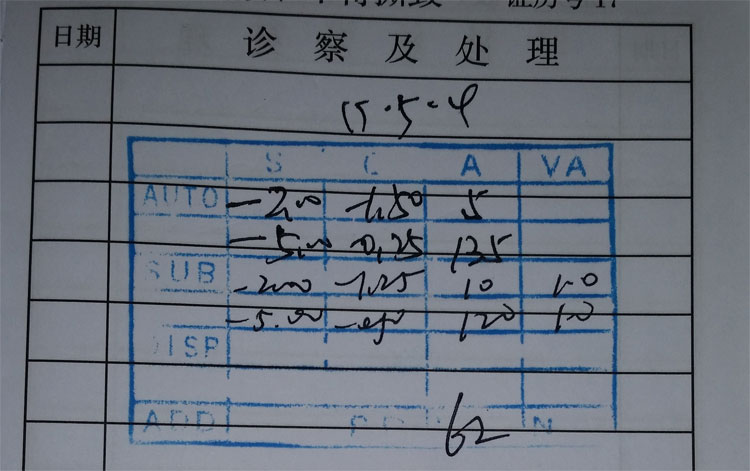 日期 诊察及处理
15.5.4
S C A VA
AUTO -2.00 -1.50 5
-5.00 -0.25 135
SUB -2.00 -1.25 10 1.0
-5.00 -0.50 120 1.0
DISP
ADD PD 62 N